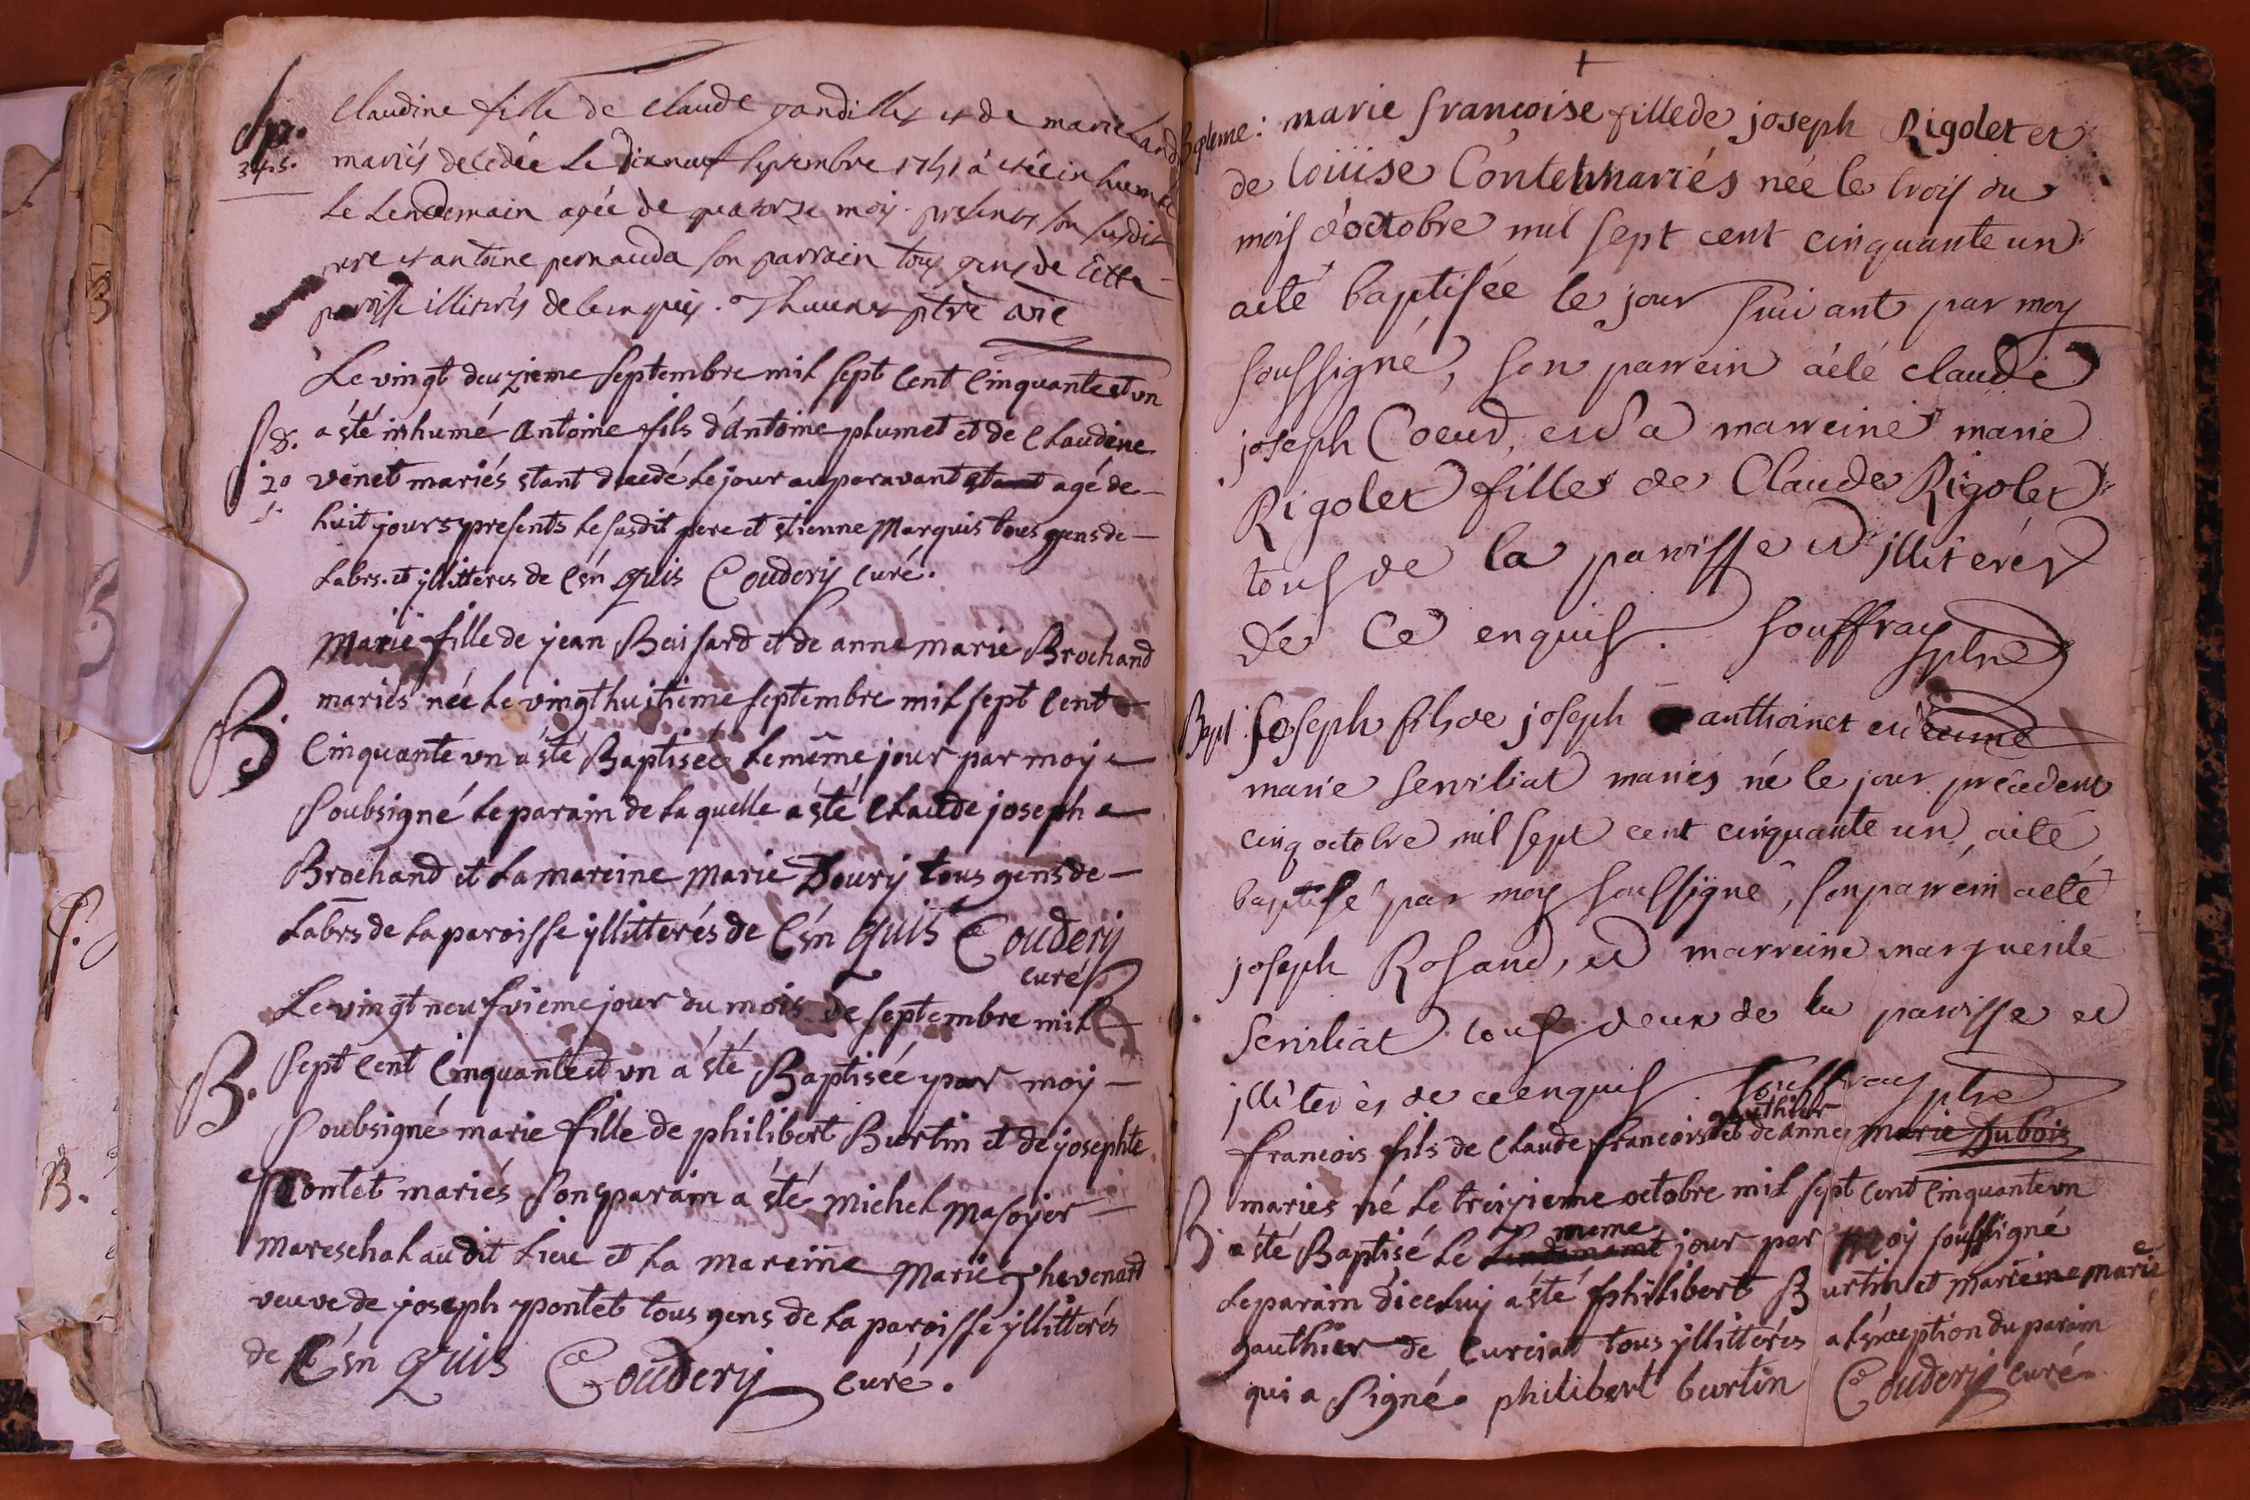 Sp.
3#5s.
Claudine fille de Claude gandillet et de marie
mariés decedée Le dixneuf septembre 1751 a etée inhumée
Le Lendemain agée de quatorze mois presents son susdit
pere et antoine pernauda son parrain tous gens de cette
paroisse illiterés de ce enquis. Thuenet ptre vic
Le vingt deuzieme septembre mil sept Cent Cinquante et un
S d.
20
s.
a été inhumé antoine fils d'antoine plumet et de Claudine
venet mariés etant decedé Le jour auparavant etant agé de
huit jours presents Le susdit pere et etienne Marquis tous gens de
Labrs. et yllitteres de C'én quis Couderij curé.
Marie fille de jean Buisard et de anne marie Brochand
B.
mariés née Le vingt huitieme septembre mil sept Cent
Cinquante un a été Baptisée Le même jour par moy
soubsigné Le parain de La quelle a été Claude joseph
Brochand et La mareine Marie Doury tous gens de
Labrs de La paroisse yllitterés de C'én quis Couderij
curé
Le vingt neufvieme jour du mois de septembre mil
B.
sept Cent Cinquante et un a été Baptisée par moy
soubsigné marie fille de philibert Burtin et de josephte
Pontet mariés son parain a été Michel Masoyer
Mareschal audit Lieu et La mareine Marie Chevenard
veuve de joseph pontet tous gens de La paroisse yllitterés
de C'én quis Couderij curé.
Bapteme: marie francoise fille de joseph Rigolet et
de loüise Contet mariés née le trois du
mois d'octobre mil sept cent cinquante un
a eté baptisée le jour suivant par moy
soussigné, son parrein a été claude
joseph Coeur, et sa marreine marie
Rigolet fille de Claude Rigolet
tous de la parroisse et illiterés
de ce enquis. Souffray
ptre
Bapt: joseph fils de joseph anthoinet et
marie servliat mariés né le jour precedent
cinq octobre mil sept cent cinquante un, a été
baptisé par moy soussigné, son parrein a eté
joseph Rosand, et marreine marguerite
servliat tous deux de la parroisse et
jlliterés de ce enquis Souffray ptre
gauthier
francois fils de Claude francois et de anne marie Dubois
B.
mariés né Le treizieme octobre mil sept Cent Cinquante un
meme
a été Baptisé Le Lendemaint jour par Moy soussigné
Le parain d'iceluy a été philibert Burtin et mareine marie
gauthier de Curciat tous yllitterés a L'exception du parain
qui a signé. philibert burtin Couderij curé